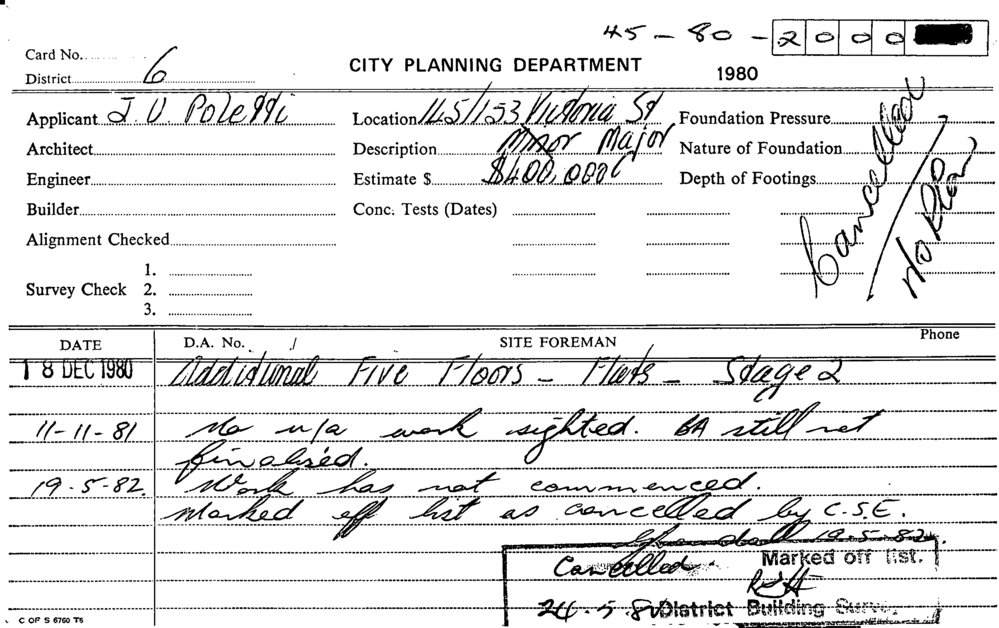 45-80-2000
Card No.
District 6
CITY PLANNING DEPARTMENT
1980
Applicant J. V. Poletti
Location 145/153 Victoria St
Foundation Pressure
Architect
Description Minor Major
Nature of Foundation
Engineer
Estimate $ $400,000
Depth of Footings
Builder
Conc. Tests (Dates)
Cancelled
n/o Plan
Alignment Checked
1.
Survey Check 2.
3.
DATE D.A. No. SITE FOREMAN Phone
18 DEC 1980 Additional Five Floors - Flats - Stage 2
11-11-81 No u/a work sighted. BA still not
finalised.
19-5-82. Work has not commenced.
Marked off list as cancelled by C.S.E.
19-5-82.
Cancelled Marked off list.
24.5.82 District Building Surve
C OF S 6760 T6